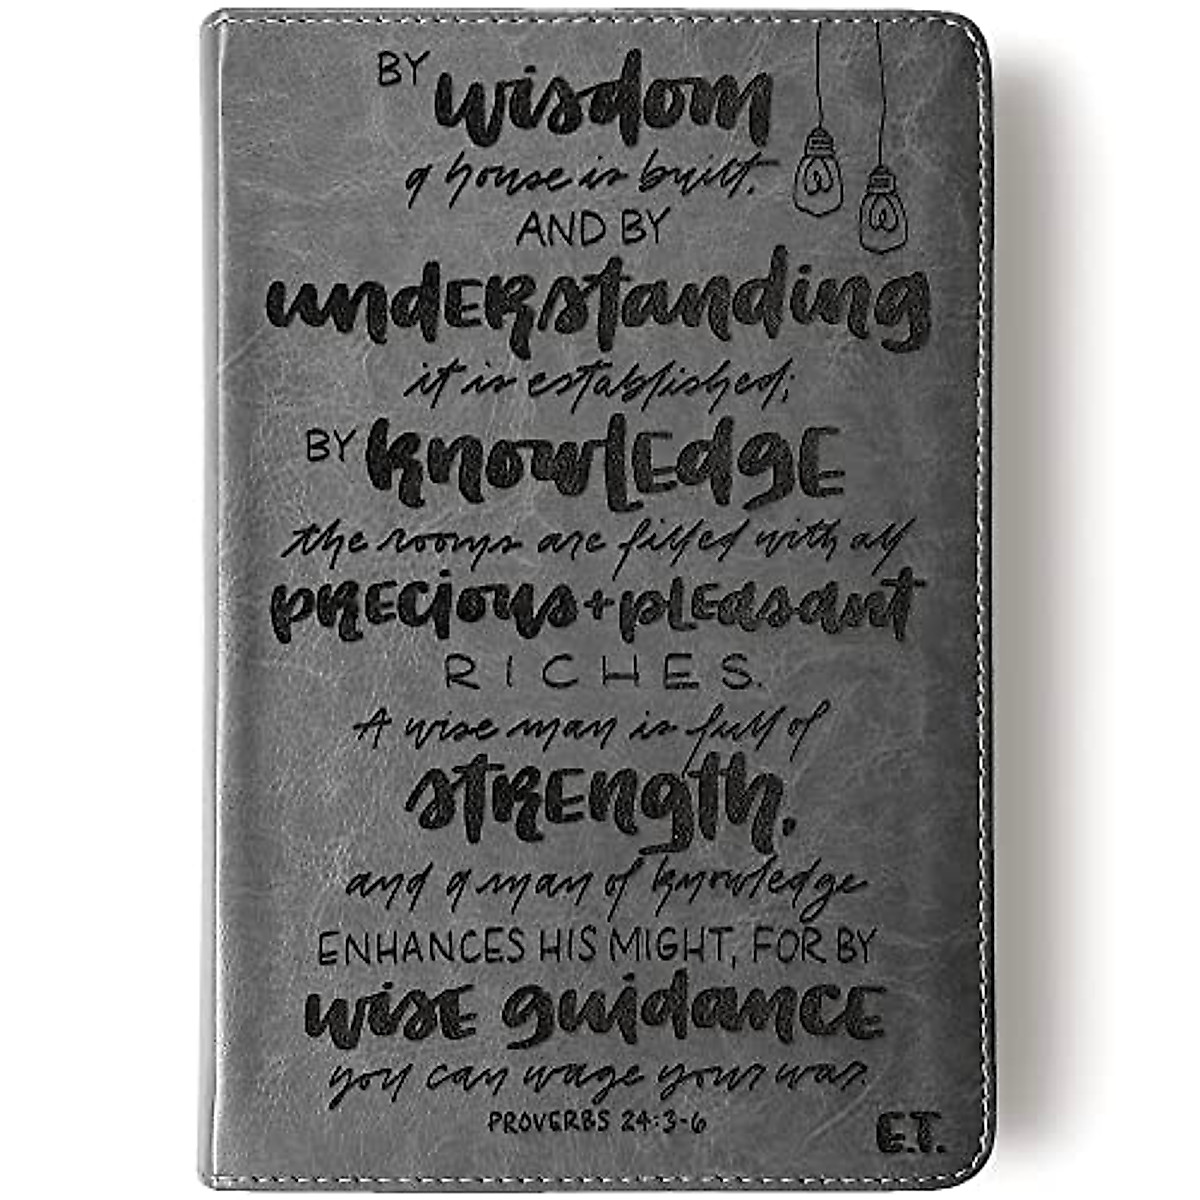 BY wisdom
a house is built,
AND BY
undERstanding
it is established;
BY knowlEdgE
the rooms are filled with all
pRECious+plEasant
RICHES.
A wise man is full of
stREngth,
and a man of knowledge
ENHANCES HIS MIGHT, FOR BY
wisE guidancE
you can wage your war.
PROVERBS 24:3-6
E.T.